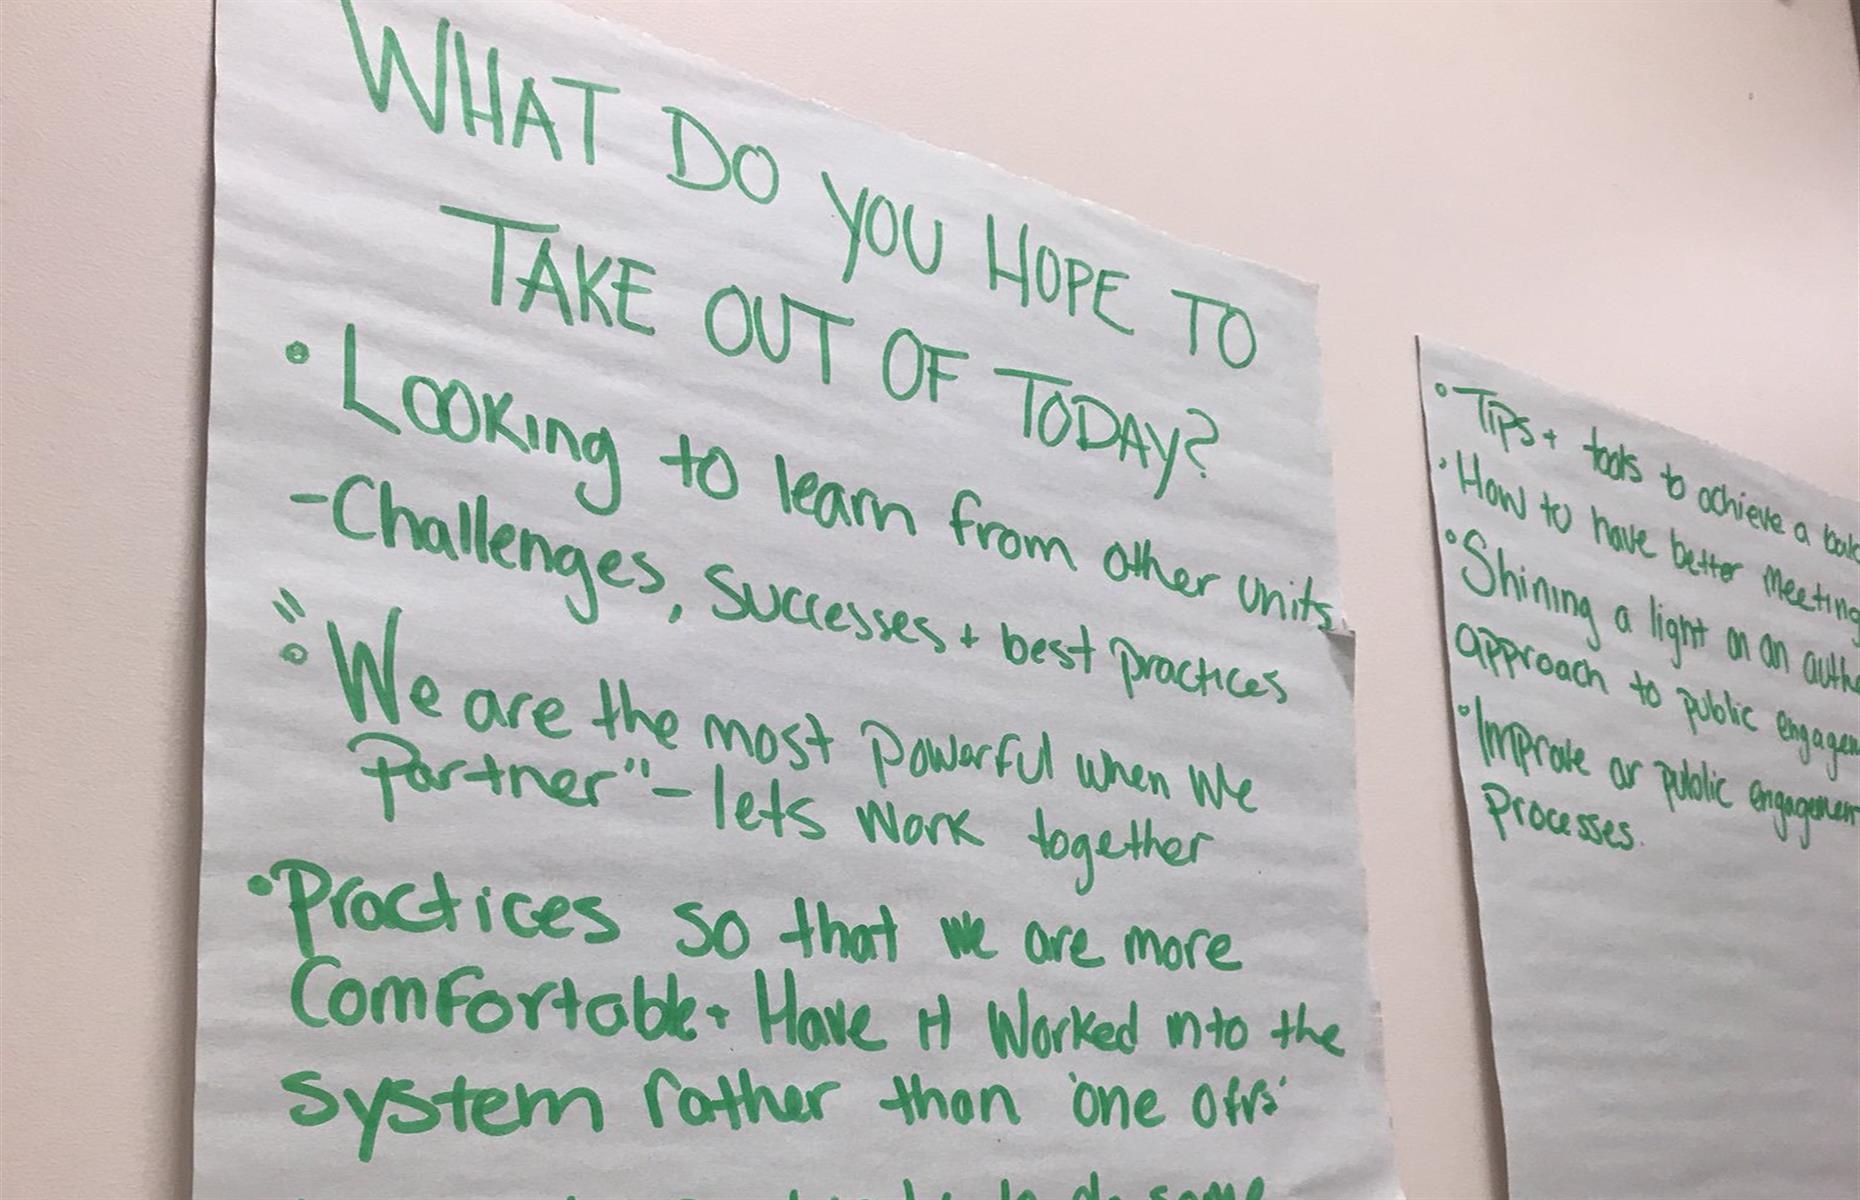 WHAT DO YOU HOPE TO
TAKE OUT OF TODAY?
• Looking to learn from other units.
- Challenges, successes + best practices
• "We are the most powerful when we
Partner" - lets work together
• Practices so that we are more
Comfortable + Have it worked into the
system rather than 'one offs'
to do some
• Tips + tools to achieve a
• How to have better meeting
• Shining a light on an
approach to public
• Improve or public
Processes.